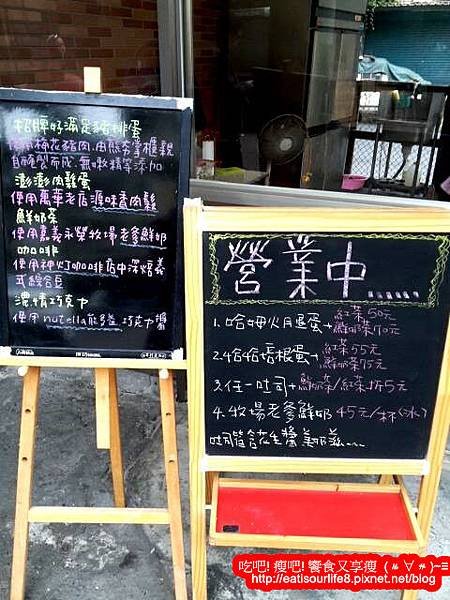 招牌好滿足豬排蛋
使用梅花豬肉,由熊秀掌櫃親
自醃製而成,無嫩精等添加
澎澎肉鬆蛋
使用萬華老店源味香肉鬆
鮮奶茶
使用嘉義永榮牧場老爹鮮奶
咖啡
使用神火J咖啡店中深焙義
式綜合豆
濃情巧克力
使用nutella能多益 巧克力醬
營業中......
1.哈姆火腿蛋+紅茶50元
鮮奶茶70元
2.哈哈培根蛋+紅茶55元
鮮奶茶75元
3.任一吐司+鮮奶茶/紅茶 折5元
4.牧場老爹鮮奶 45元/杯(冰)
吐司皆含花生醬美奶滋...
吃吧! 瘦吧! 饗食又享瘦
http://eatisourlife8.pixnet.net/blog